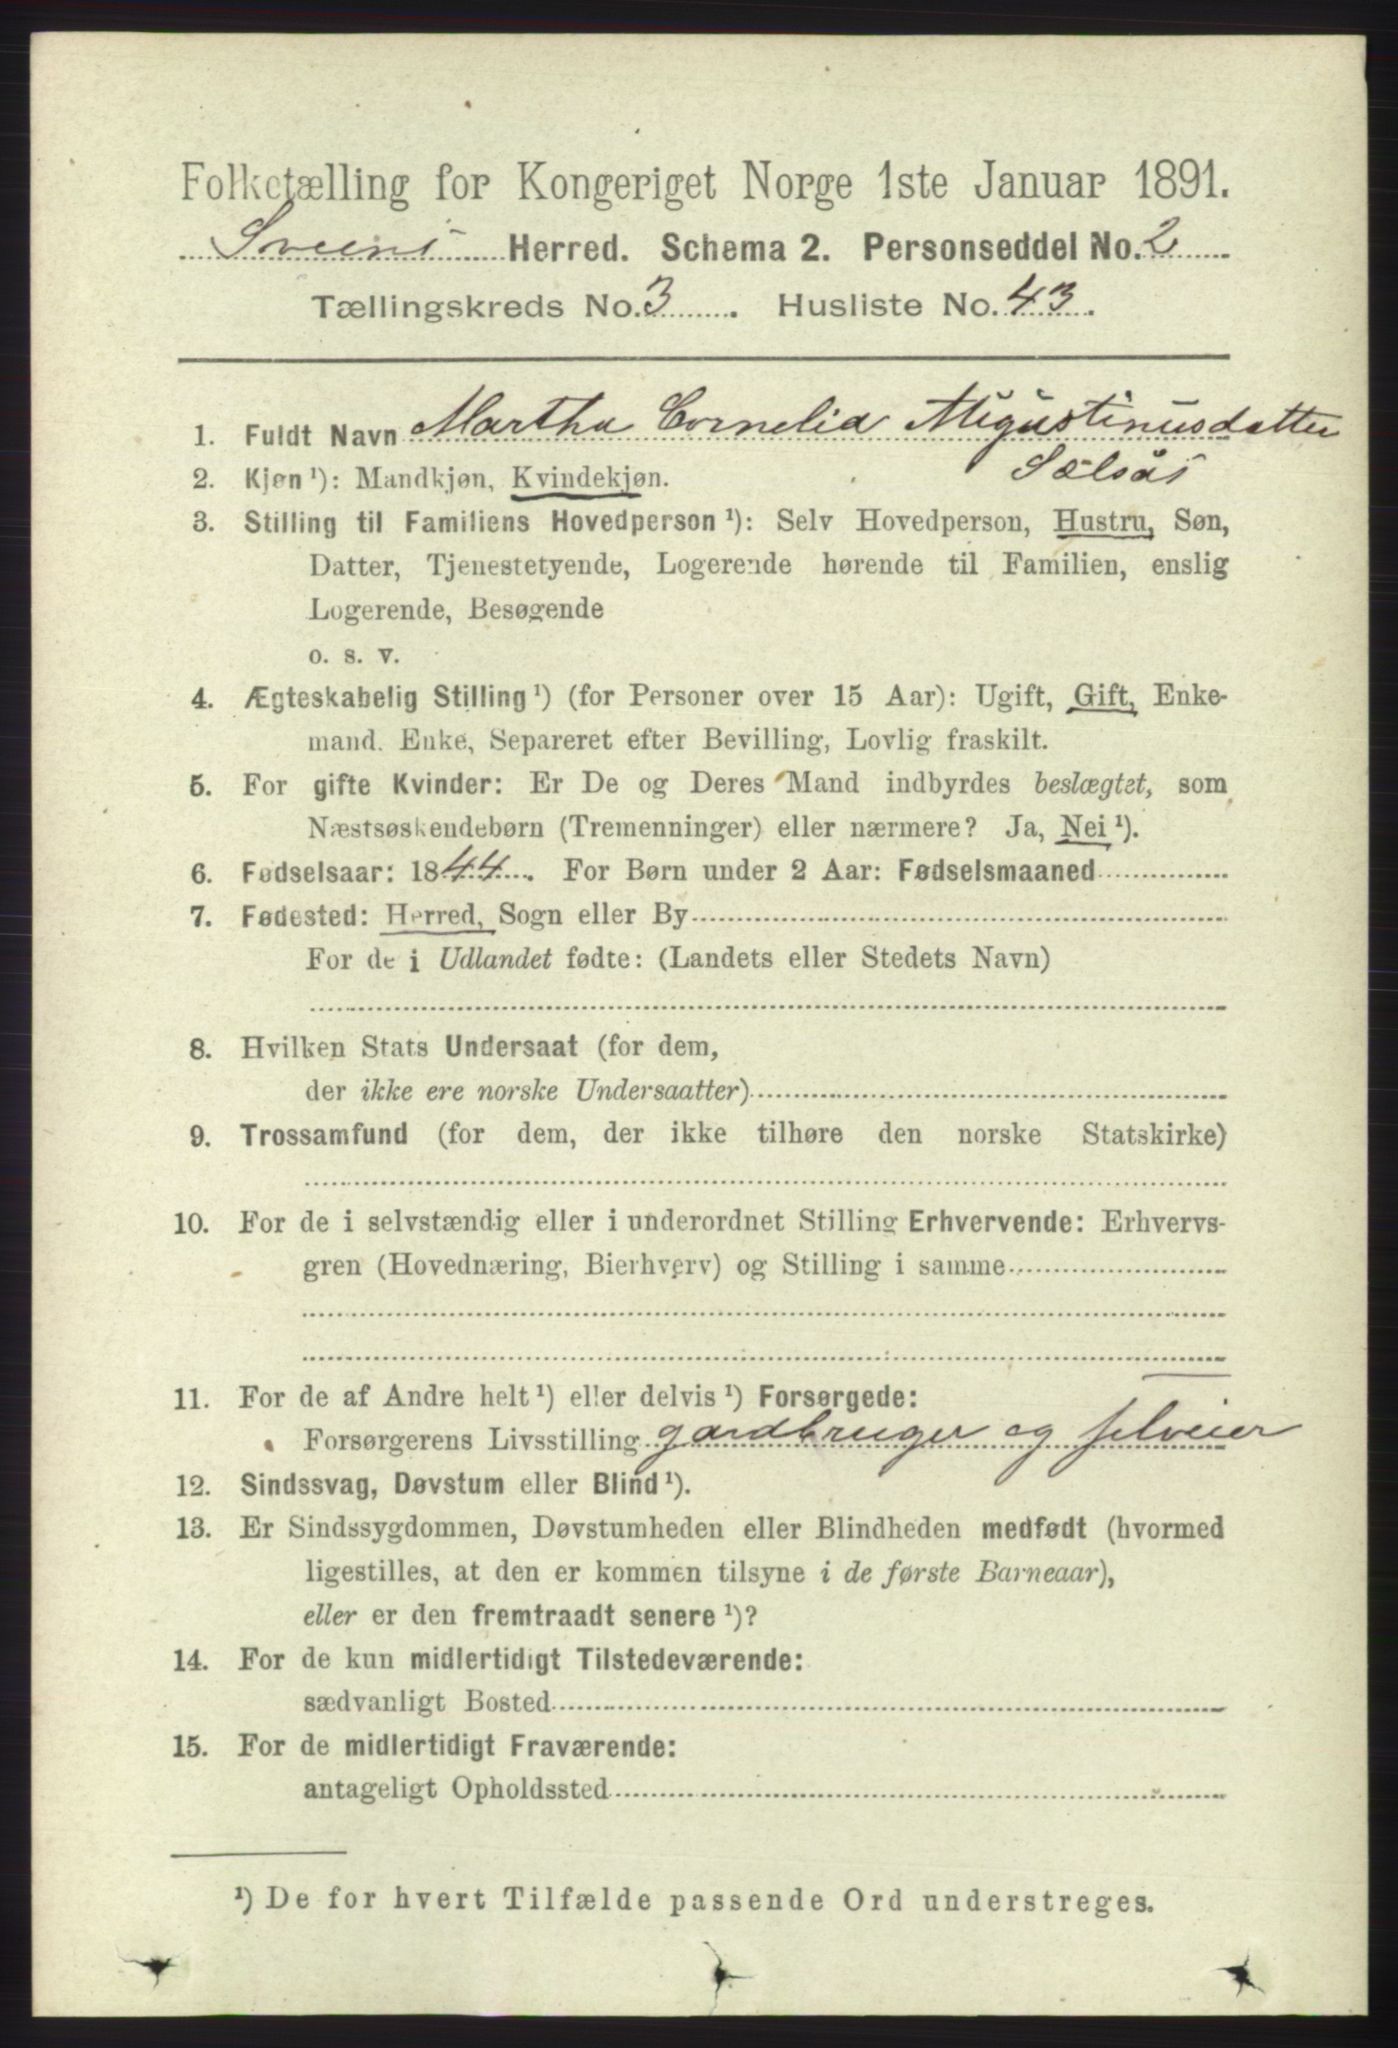 Folketælling for Kongeriget Norge 1ste Januar 1891.
Sveens Herred. Schema 2. Personseddel No. 2
Tællingskreds No. 3. Husliste No. 43.
1. Fuldt Navn Martha Cornelia Augustinusdatter
Sælsås
2. Kjøn ¹): Mandkjøn, Kvindekjøn.
3. Stilling til Familiens Hovedperson ¹): Selv Hovedperson, Hustru, Søn,
Datter, Tjenestetyende, Logerende hørende til Familien, enslig
Logerende, Besøgende
o. s. v.
4. Ægteskabelig Stilling ¹) (for Personer over 15 Aar): Ugift, Gift, Enke-
mand. Enke, Separeret efter Bevilling, Lovlig fraskilt.
5. For gifte Kvinder: Er De og Deres Mand indbyrdes beslægtet, som
Næstsøskendebørn (Tremenninger) eller nærmere? Ja, Nei ¹).
6. Fødselsaar: 1844. For Børn under 2 Aar: Fødselsmaaned
7. Fødested: Herred, Sogn eller By
For de i Udlandet fødte: (Landets eller Stedets Navn)
8. Hvilken Stats Undersaat (for dem,
der ikke ere norske Undersaatter)
9. Trossamfund (for dem, der ikke tilhøre den norske Statskirke)
10. For de i selvstændig eller i underordnet Stilling Erhvervende: Erhvervs-
gren (Hovednæring, Bierhverv) og Stilling i samme
11. For de af Andre helt ¹) eller delvis ¹) Forsørgede:
Forsørgerens Livsstilling gardbruger og selveier
12. Sindssvag, Døvstum eller Blind ¹).
13. Er Sindssygdommen, Døvstumheden eller Blindheden medfødt (hvormed
ligestilles, at den er kommen tilsyne i de første Barneaar),
eller er den fremtraadt senere ¹)?
14. For de kun midlertidigt Tilstedeværende:
sædvanligt Bosted
15. For de midlertidigt Fraværende:
antageligt Opholdssted
¹) De for hvert Tilfælde passende Ord understreges.